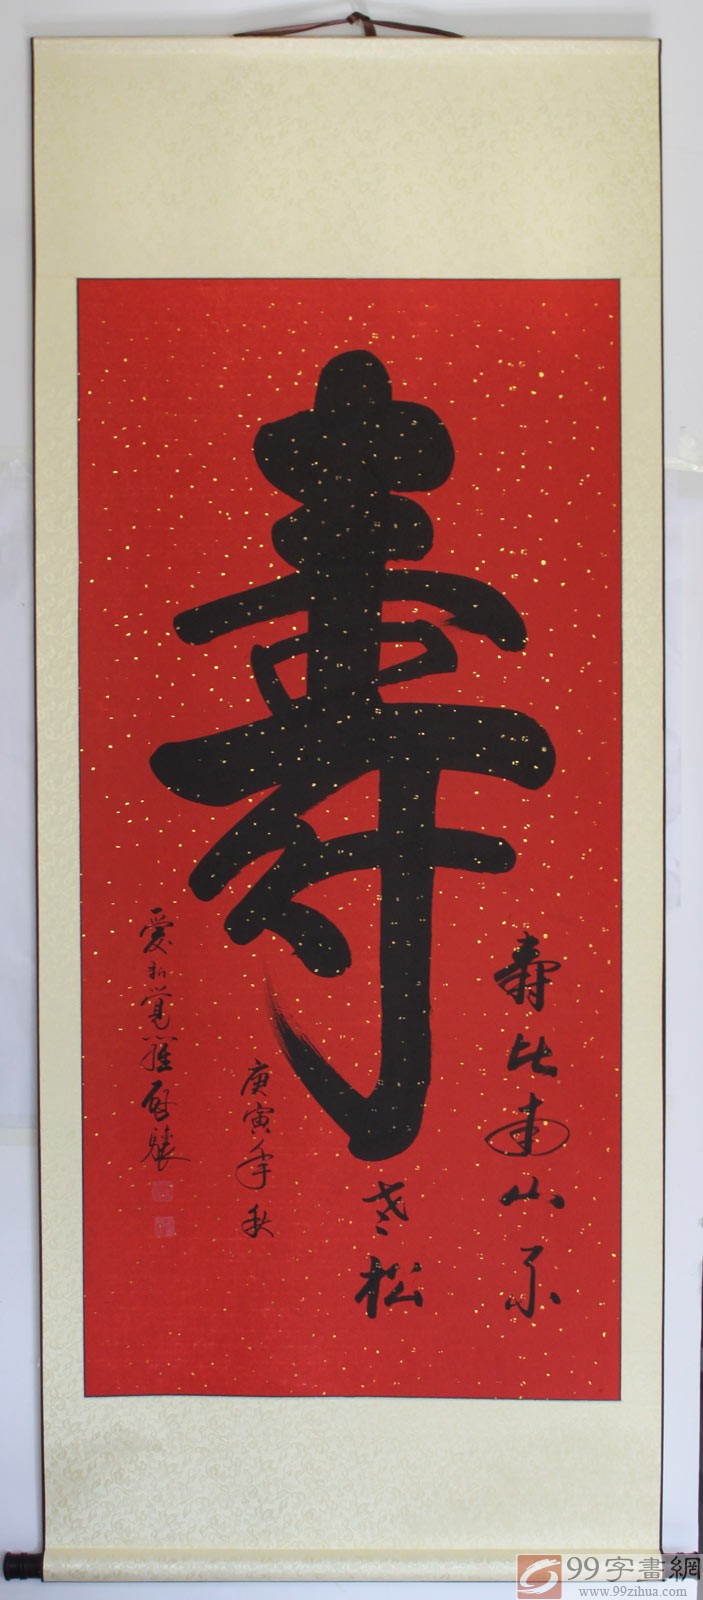 壽
壽比南山不
老松
庚寅年秋
愛新覺羅啟驤
99字畫網
www.99zihua.com